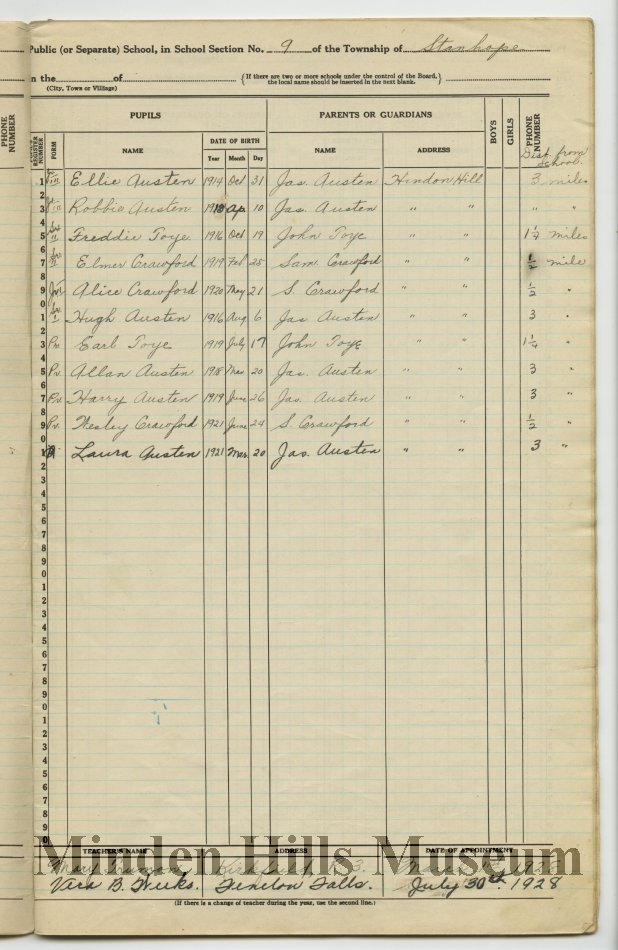 Public (or Separate) School, in School Section No. 9 of the Township of Stanhope
in the of {If there are two or more schools under the control of the Board, the local name should be inserted in the next blank.}
(City, Town or Village)
PHONE NUMBER
PUPILS PARENTS OR GUARDIANS BOYS GIRLS PHONE NUMBER
REGISTER NUMBER FORM NAME DATE OF BIRTH NAME ADDRESS Dist. from School.
Year Month Day
1 Ellie Austen 1914 Oct 31 Jas. Austen Hindon Hill 3 miles
3 Robbie Austen Ap. 10 Jas. Austen " " " "
5 Freddie Toye 1916 Oct 19 John Toye " " 1¼ miles
7 Elmer Crawford 1919 Feb 25 Sam. Crawford " " ½ mile
9 Jr Alice Crawford 1920 May 21 S. Crawford " " ½ "
1 Hugh Austen 1916 Aug 6 Jas Austen " " 3 "
3 Pr. Earl Toye 1919 July 17 John Toye " " 1¼ "
5 Pr. Allan Austen 1918 Mar 20 Jas. Austen " " 3 "
7 Pr. Harry Austen 1919 June 26 Jas. Austen " " 3 "
9 Pr. Wesley Crawford 1921 June 24 S. Crawford " " ½ "
1 Laura Austen 1921 Mar. 20 Jas. Austen " " 3 "
TEACHER'S NAME ADDRESS DATE OF APPOINTMENT
Mary Truman Kirkfield R. 3. 1928
Vera B. Weeks. Fenelon Falls. July 30th. 1928
(If there is a change of teacher during the year, use the second line.)
Minden Hills Museum